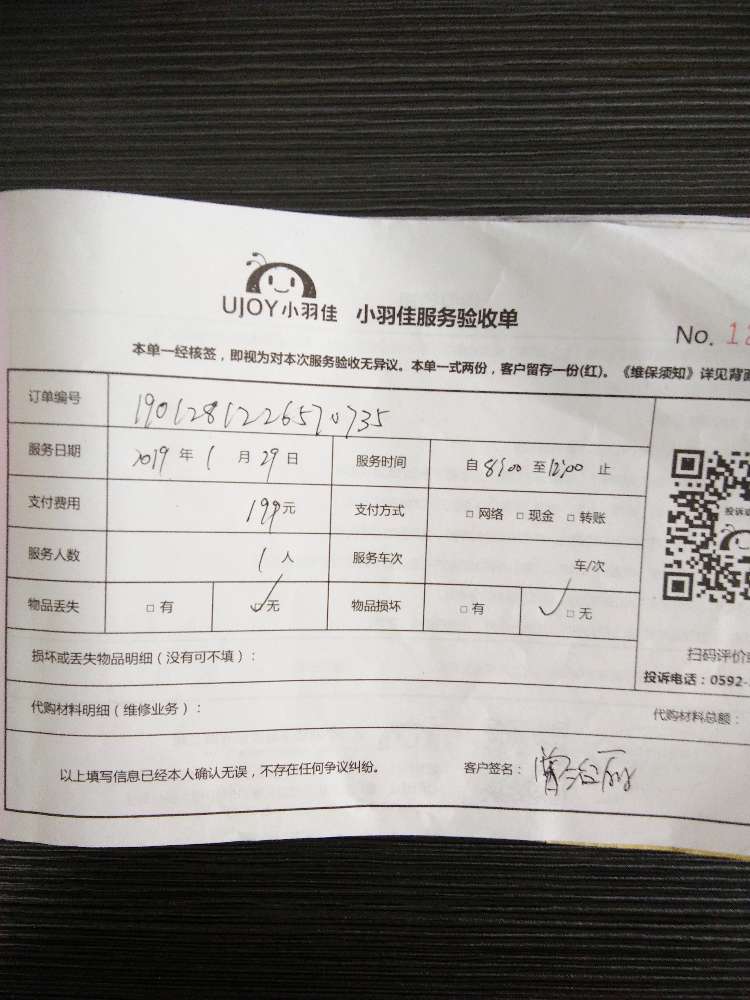 UJOY小羽佳 小羽佳服务验收单
No. 1
本单一经核签，即视为对本次服务验收无异议。本单一式两份，客户留存一份(红)。《维保须知》详见背面
订单编号 1901281226570735
服务日期 2019 年 1 月 29 日 服务时间 自 8:00 至 12:00 止
支付费用 199元 支付方式 □ 网络 □ 现金 □ 转账
服务人数 1 人 服务车次 车/次
物品丢失 □ 有 ✓□ 无 物品损坏 □ 有 ✓□ 无
投诉
损坏或丢失物品明细（没有可不填）：
扫码评价
投诉电话：0592-
代购材料明细（维修业务）：
代购材料总额：
以上填写信息已经本人确认无误，不存在任何争议纠纷。 客户签名：